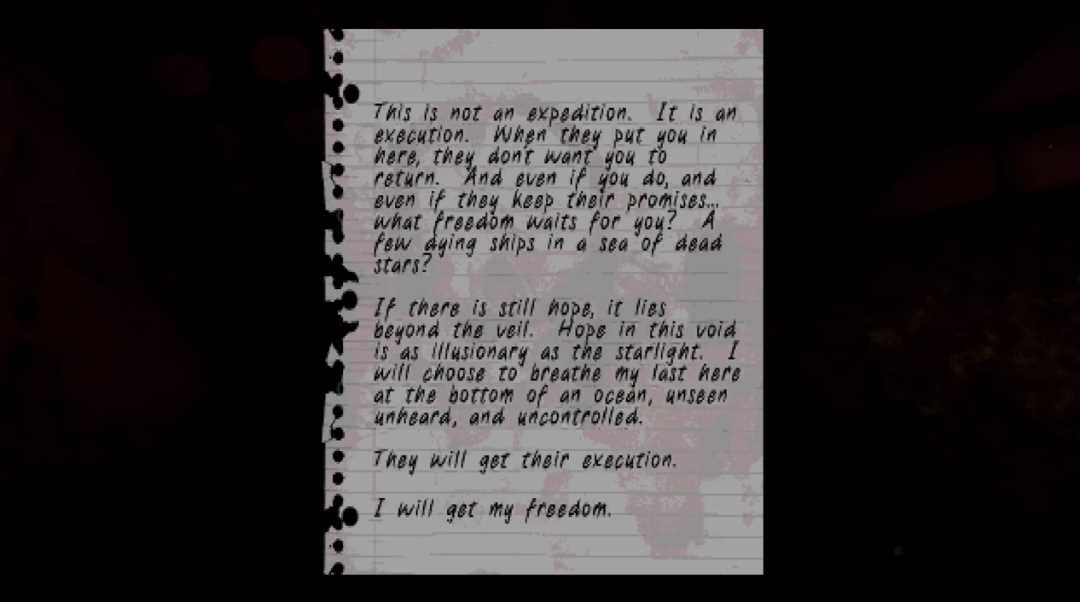 This is not an expedition.  It is an
execution.  When they put you in
here, they don't want you to
return.  And even if you do, and
even if they keep their promises...
what freedom waits for you?  A
few dying ships in a sea of dead
stars?
If there is still hope, it lies
beyond the veil.  Hope in this void
is as illusionary as the starlight.  I
will choose to breathe my last here
at the bottom of an ocean, unseen
unheard, and uncontrolled.
They will get their execution.
I will get my freedom.